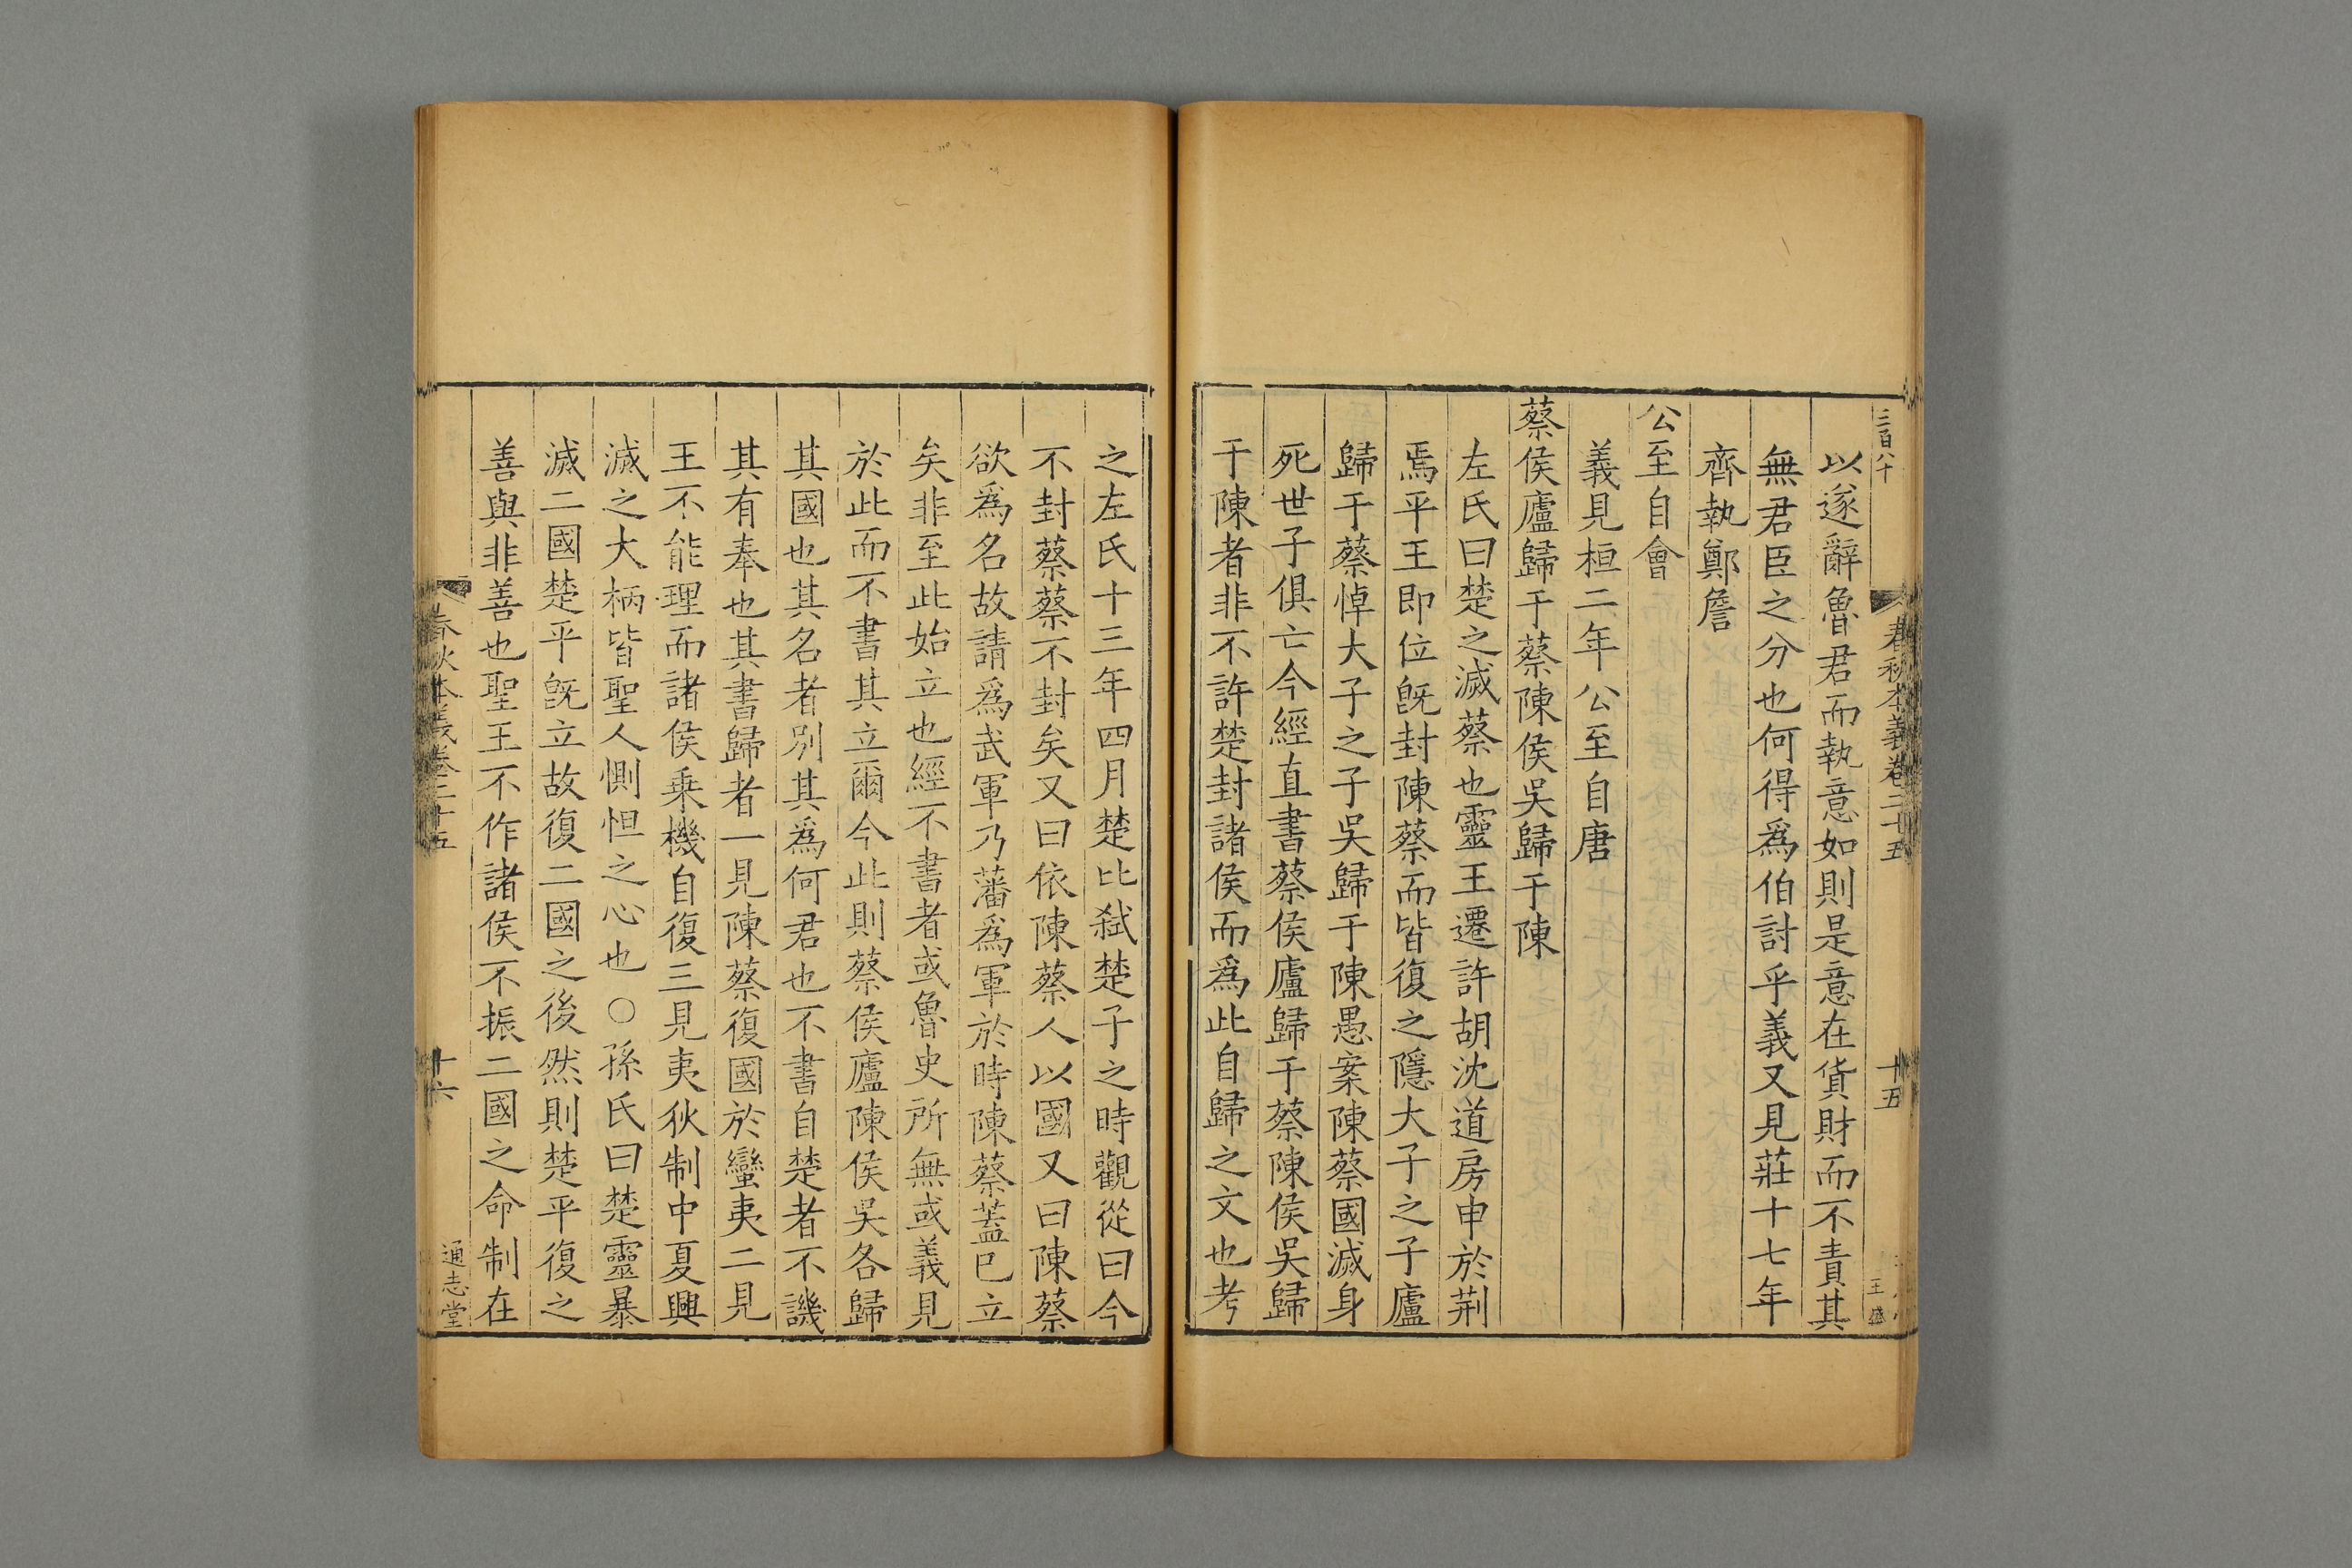 三百八十
春秋本義卷二十五
十五
王盛
以遂辭魯君而執意如則是意在貨財而不責其
無君臣之分也何得爲伯討乎義又見莊十七年
齊執鄭詹
公至自會
義見桓二年公至自唐
蔡侯廬歸于蔡陳侯吳歸于陳
左氏曰楚之滅蔡也靈王遷許胡沈道房申於荆
焉平王即位旣封陳蔡而皆復之隱大子之子廬
歸于蔡悼大子之子吳歸于陳愚案陳蔡國滅身
死世子俱亡今經直書蔡侯廬歸于蔡陳侯吳歸
于陳者非不許楚封諸侯而爲此自歸之文也考
之左氏十三年四月楚比弒楚子之時觀從曰今
不封蔡蔡不封矣又曰依陳蔡人以國又曰陳蔡
欲爲名故請爲武軍乃藩爲軍於時陳蔡蓋巳立
矣非至此始立也經不書者或魯史所無或義見
於此而不書其立爾今此則蔡侯廬陳侯吳各歸
其國也其名者別其爲何君也不書自楚者不譏
其有奉也其書歸者一見陳蔡復國於蠻夷二見
王不能理而諸侯乗機自復三見夷狄制中夏興
滅之大柄皆聖人惻怛之心也○孫氏曰楚靈暴
滅二國楚平旣立故復二國之後然則楚平復之
善與非善也聖王不作諸侯不振二國之命制在
春秋本義卷二十五
十六
通志堂